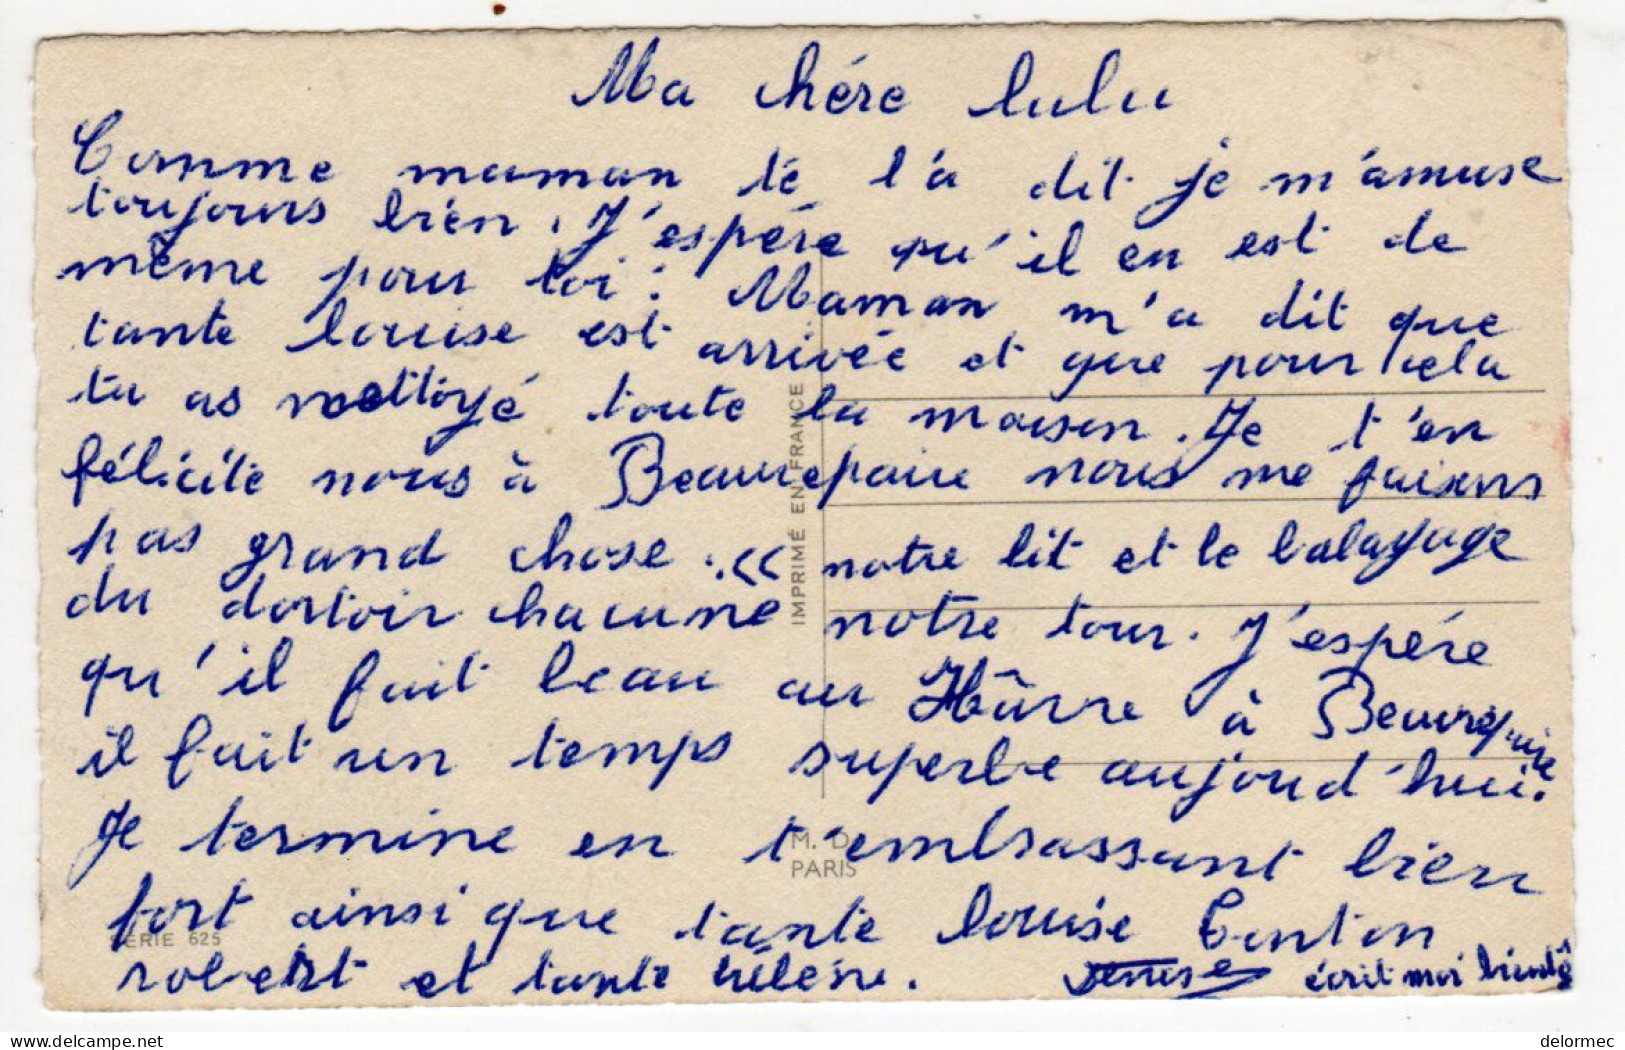 Ma chére lulu
Comme maman té l'a dit je m'amuse
toujours bien. J'espére qu'il en est de
même pour toi. Maman m'a dit que
tante louise est arrivée et que pour cela
tu as nettoyé toute la maison. Je t'en
félicite nous à Beaurepaire nous me faisons
pas grand chose. << notre lit et le balayage
du dortoir chacune notre tour. J'espére
qu'il fait beau au Hâvre à Beaurepaire
il fait un temps superbe aujourd'hui.
Je termine en t'embrassant bien
fort ainsi que tante louise Tonton
robert et tante hélène. Denise écrit moi bientô
IMPRIMÉ EN FRANCE
M. D.
PARIS
SÉRIE 625
delormec